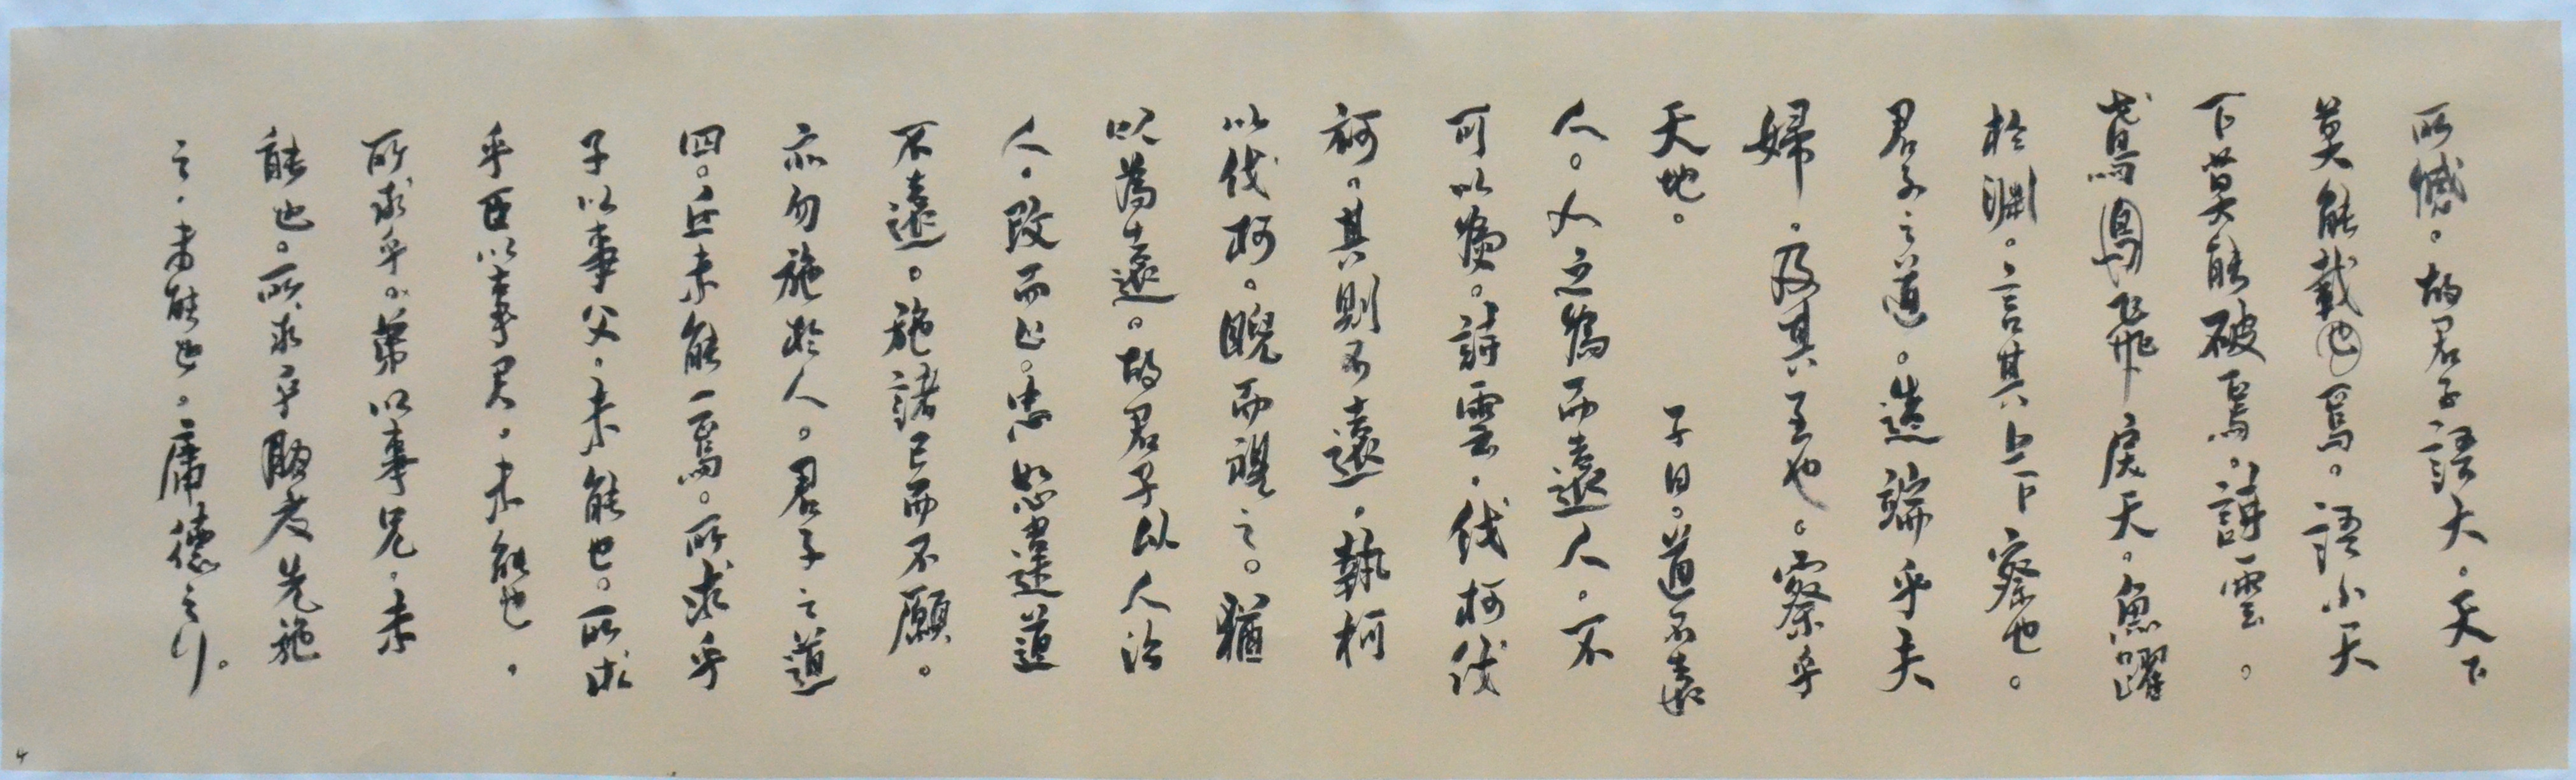 所憾。故君子語大。天下
莫能載也焉。語小天
下莫能破焉。詩雲。
鳶鳥飛戾天。魚躍
於淵。言其上下察也。
君子之道。造端乎夫
婦。及其至也。察乎
天地。 子曰。道不遠
人。人之為而遠人。不
可以為。詩雲。伐柯伐
柯。其則不遠。執柯
以伐柯。睨而視之。猶
以為遠。故君子以人治
人。改而止。忠恕違道
不遠。施諸己而不願。
亦勿施於人。君子之道
四。丘未能一焉。所求乎
子以事父。未能也。所求
乎臣以事君。未能也。
所求乎。弟以事兄。未
能也。所求乎朋友先施
之。未能也。庸德之行。
4